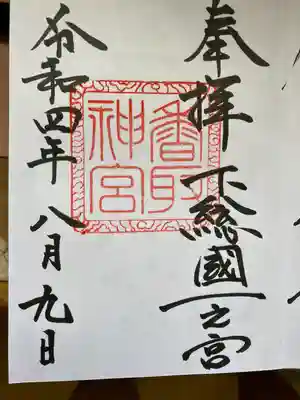 奉拝 下総國一之宮
香取
神宮
令和四年八月九日